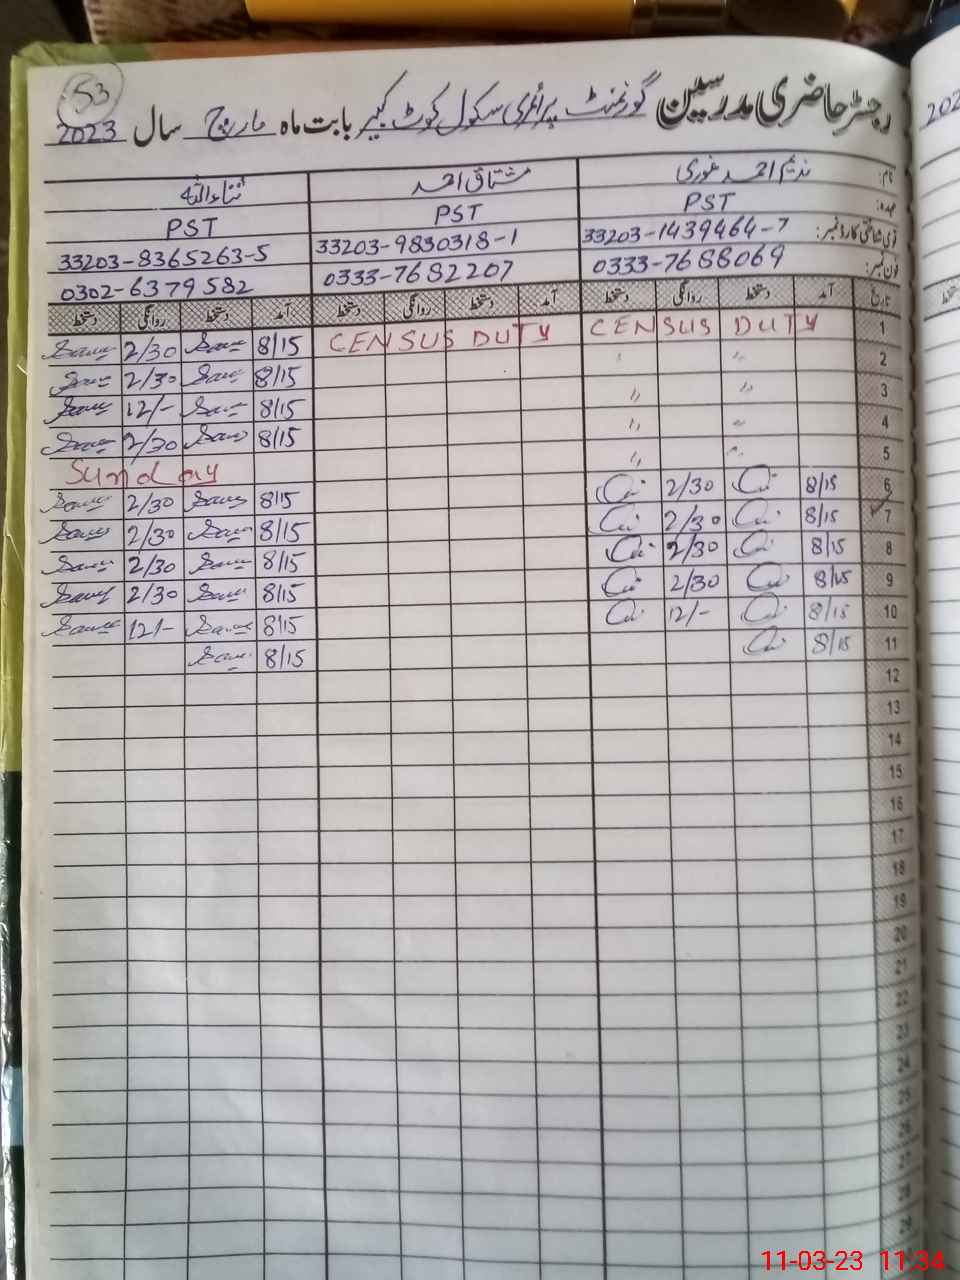 53
رجسٹر حاضری مدرسین گورنمنٹ پرائمری سکول کوٹ کبیر بابت ماہ مارچ سال 2023
نام: ندیم احمد غوری مشتاق احمد ثناءاللہ
عہدہ: PST PST PST
قومی شناختی کارڈ نمبر: 33203-1439464-7 33203-9830318-1 33203-8365263-5
فون نمبر: 0333-7688069 0333-7682207 0302-6379582
تاریخ آمد دستخط روانگی دستخط آمد دستخط روانگی دستخط آمد دستخط روانگی دستخط
1 CENSUS DUTY CENSUS DUTY 8/15 2/30
2 " " 8/15 2/30
3 " " 8/15 12/-
4 " " 8/15 2/30
5 " " Sunday
6 8/15 2/30 8/15 2/30
7 8/15 2/30 8/15 2/30
8 8/15 2/30 8/15 2/30
9 8/15 2/30 8/15 2/30
10 8/15 12/- 8/15 12/-
11 8/15 8/15
12
13
14
15
16
17
18
19
20
21
22
23
24
25
26
27
28
29
11-03-23 11:34